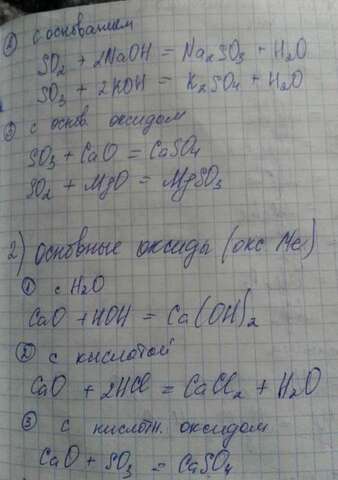 ② с основанием
SO₂ + 2NaOH = Na₂SO₃ + H₂O
SO₃ + 2KOH = K₂SO₄ + H₂O
③ с основ. оксидом
SO₃ + CaO = CaSO₄
SO₂ + MgO = MgSO₃
2) основные оксиды (окс Me)
① с H₂O
CaO + HOH = Ca(OH)₂
② с кислотой
CaO + 2HCl = CaCl₂ + H₂O
③ с кислотн. оксидом
CaO + SO₃ = CaSO₄